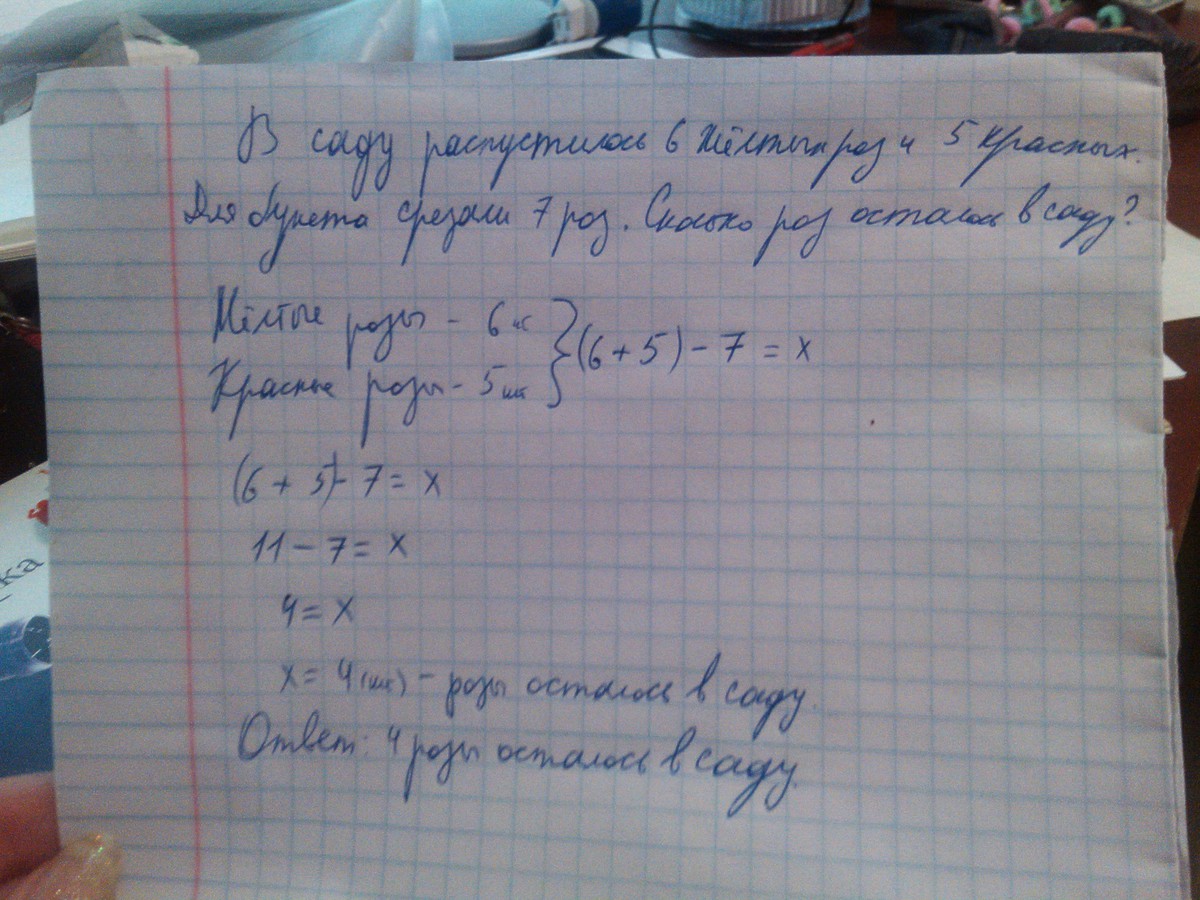 В саду распустилось 6 жёлтых роз и 5 красных.
Для букета срезали 7 роз. Сколько роз осталось в саду?
Жёлтые розы - 6 шт
Красные розы - 5 шт
} (6 + 5) - 7 = x
(6 + 5) - 7 = x
11 - 7 = x
4 = x
x = 4 (шт) - розы осталось в саду.
Ответ: 4 розы осталось в саду.
ка